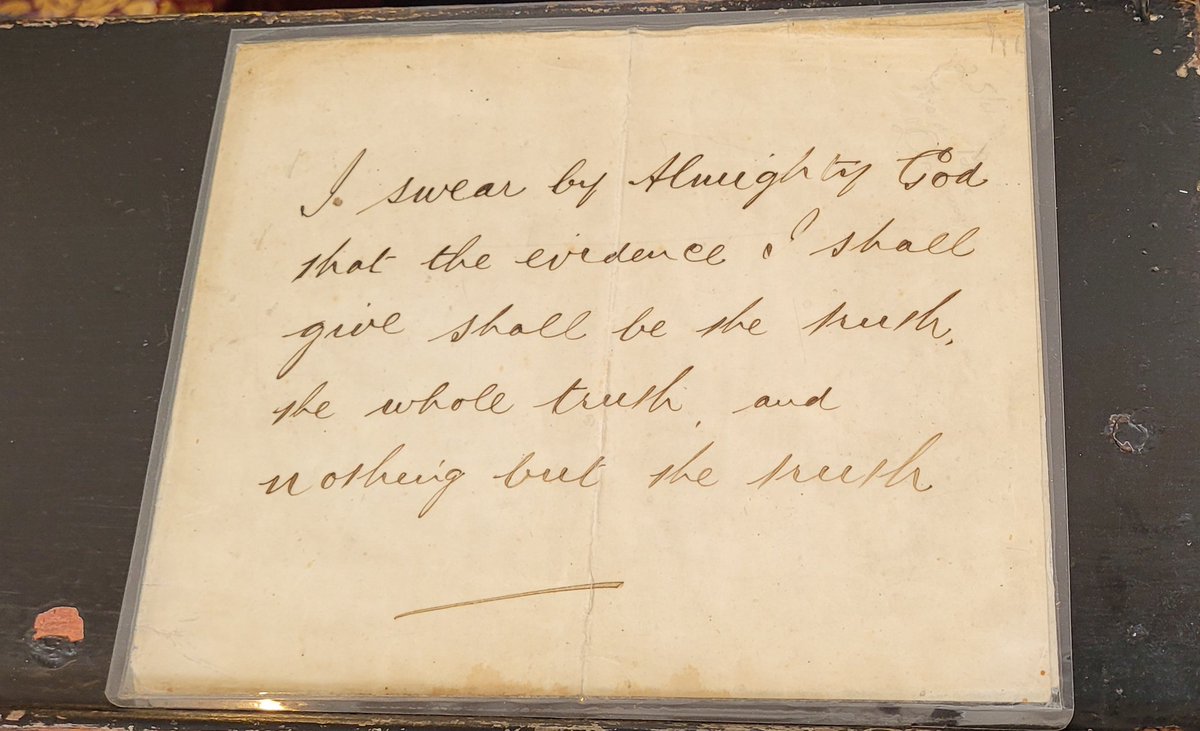 I swear by Almighty God
that the evidence I shall
give shall be the truth,
the whole truth, and
nothing but the truth